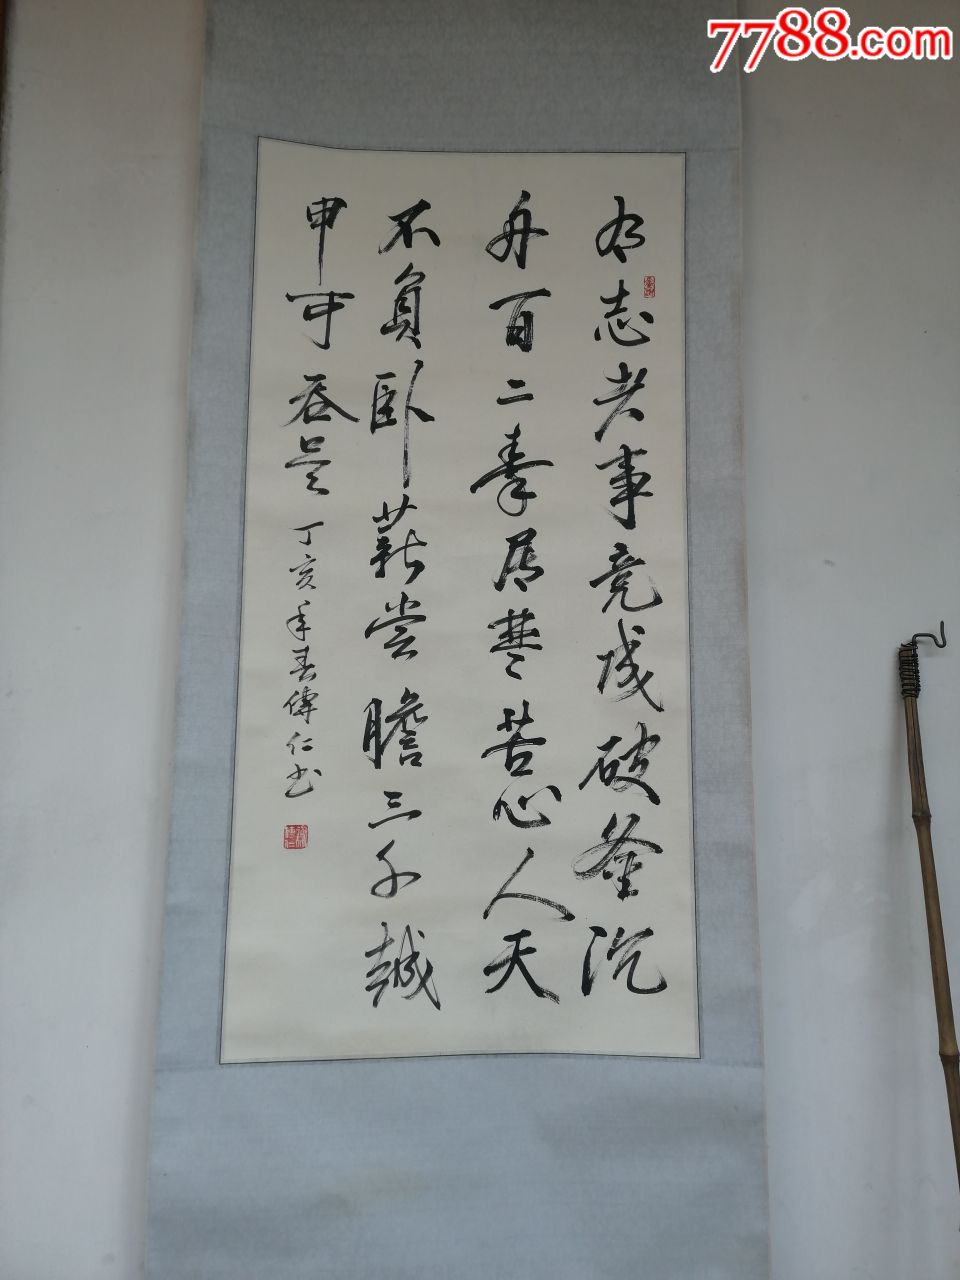 7788.com
有志者事竟成破釜沉
舟百二秦居楚苦心人天
不負卧薪尝膽三千越
甲可吞吴
丁亥年春傳仁书